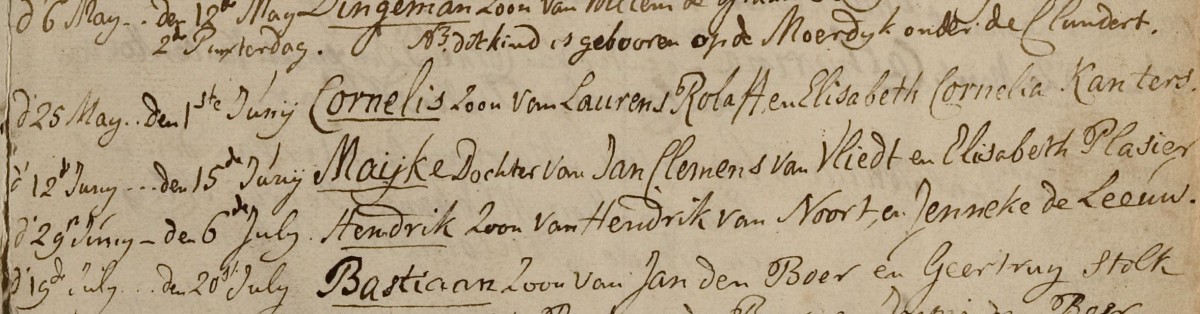 d'6 May .. den 12de May Dingeman Zoon van Willem de
2de Pinxterdag. NB. dit kind is gebooren op de Moerdyk onder de Clundert.
d'25 May .. den 1ste Junij Cornelis Zoon van Laurens Rolaff en Elisabeth Cornelia Kanters.
d'12de Juny ... den 15de Junij Maijke Dochter van Jan Clemens van Vliedt en Elisabeth Plasier
d'29n Juny - den 6de July. Hendrik Zoon van Hendrik van Noort, en Jenneke de Leeuw.
d'19de July ... den 20ste July Bastiaan Zoon van Jan den Boer en Geertruy Stolk
Boer